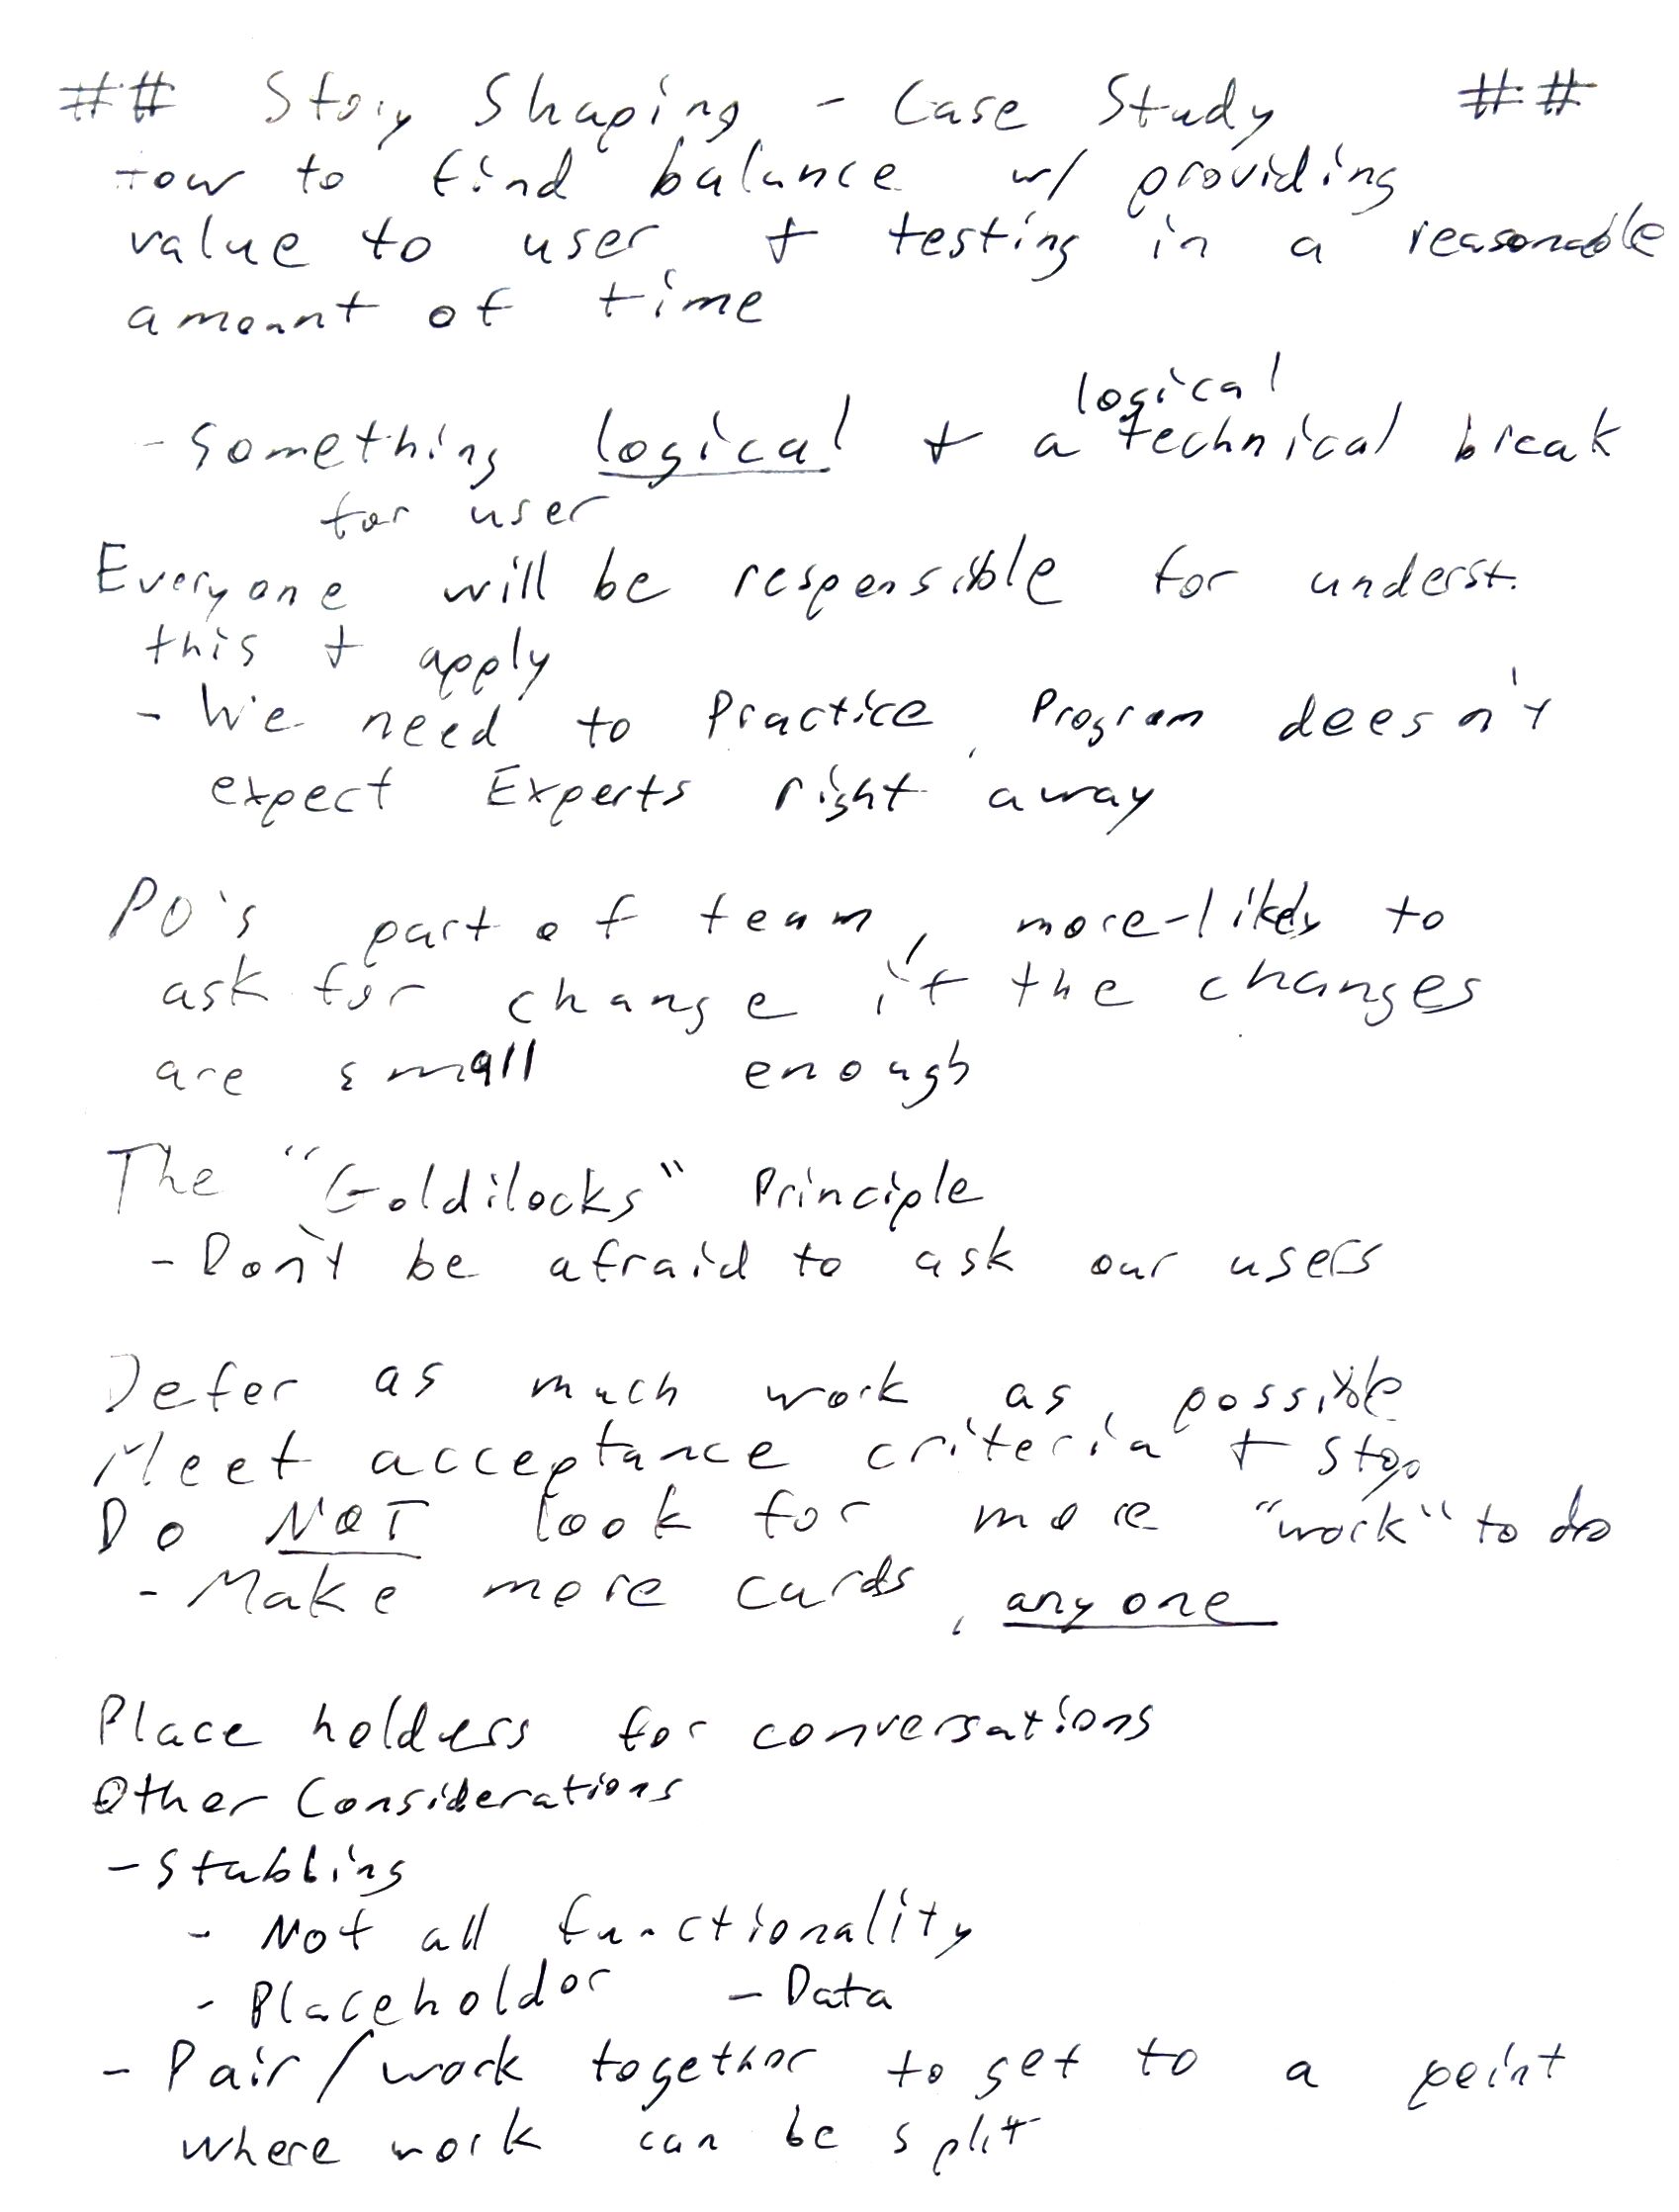 ## Story Shaping - Case Study ##
How to find balance w/ providing
value to user + testing in a reasonable
amount of time
logical
- Something logical + a technical break
for user
Everyone will be responsible for underst.
this + apply
- We need to Practice, Program doesn't
expect Experts right away
PO's part of team, more-likely to
ask for change if the changes
are small enough
The "Goldilocks" Principle
- Don't be afraid to ask our users
Defer as much work as possible
Meet acceptance criteria + stop
Do NOT look for more "work" to do
- Make more cards, anyone
Place holders for conversations
Other Considerations
- Stubbing
- Not all functionality
- Placeholder - Data
- Pair/work together to get to a point
where work can be split